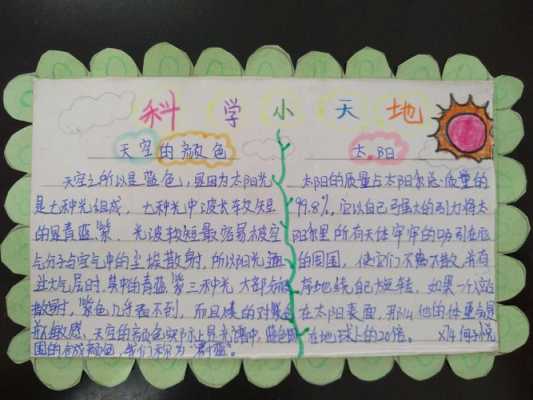 科学小天地
天空的颜色
天空之所以是蓝色,是因为太阳光
是七种光组成,七种光中波长较短
的是青蓝紫,光波较短最容易被空
气分子与空气中的尘埃散射,所以阳光通
过大气层时,其中的青蓝紫三种光大部分被
散射,紫色几乎看不到,而且
敏感,天空的颜色实际上是光谱中蓝色
的合成颜色,我们称为
太阳
太阳的质量占太阳系总质量的
99.8%,它以自己强大的引力将太
阳系里所有天体牢牢的吸引在
的周围,使它们不离不散,井有
地绕自己旋转,如果一个人站
在太阳表面,那么他的体重会是
在地球上的20倍。